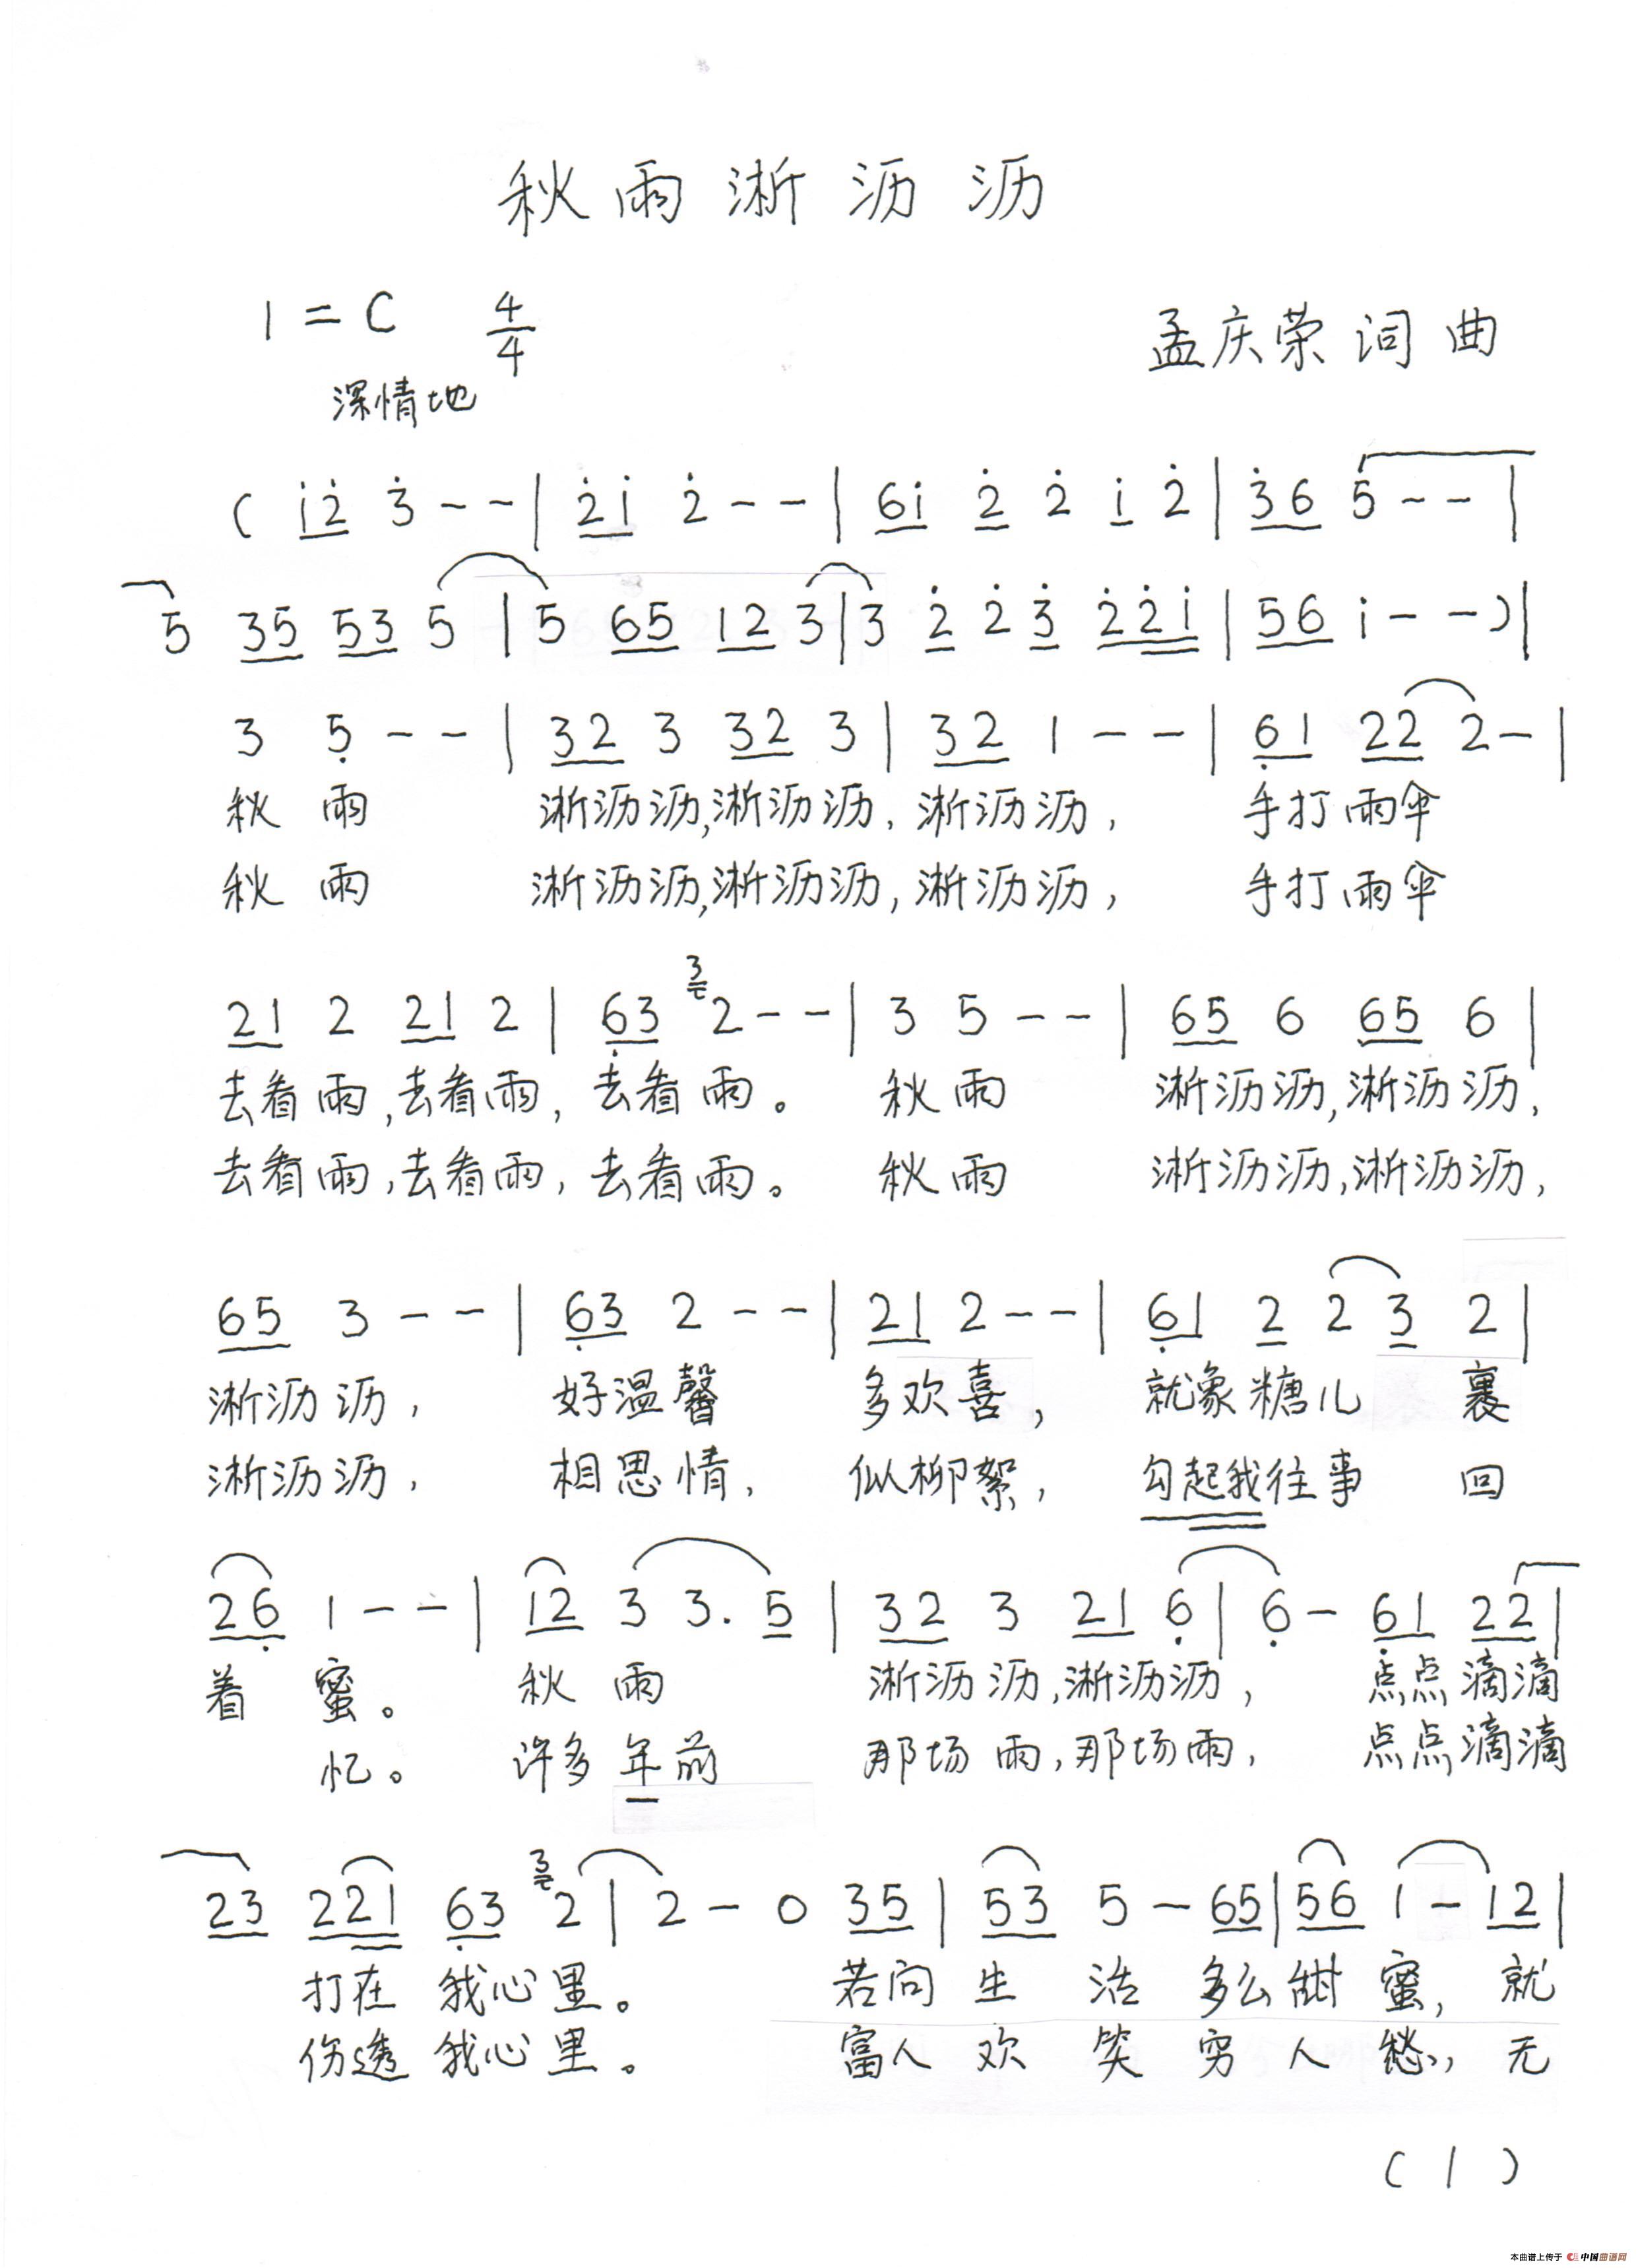 秋雨淅沥沥
1=C 4/4
孟庆荣词曲
深情地
( i̲2̲̇ 3̇ - - | 2̲̇i̲ 2̇ - - | 6̲i̲ 2̲̇ 2̇ i̲ 2̇ | 3̲̇6̲ 5 - - |
5 3̲5̲ 5̲3̲ 5 | 5 6̲5̲ 1̲2̲ 3 | 3 2̲̇ 2̇ 3̲̇ 2̲̇2̳̇i̳ | 5̲6̲ i - - ) |
3 5̣ - - | 3̲2̲ 3 3̲2̲ 3 | 3̲2̲ 1 - - | 6̲̣1̲ 2̲2̲ 2 - |
秋雨 淅沥沥,淅沥沥,淅沥沥, 手打雨伞
秋雨 淅沥沥,淅沥沥,淅沥沥, 手打雨伞
3
2̲1̲ 2 2̲1̲ 2 | 6̲̣3̲ 2 - - | 3 5 - - | 6̲5̲ 6 6̲5̲ 6 |
去看雨,去看雨,去看雨。 秋雨 淅沥沥,淅沥沥,
去看雨,去看雨,去看雨。 秋雨 淅沥沥,淅沥沥,
6̲5̲ 3 - - | 6̲̣3̲ 2 - - | 2̲1̲ 2 - - | 6̲̣1̲ 2̲ 2 3̲ 2 |
淅沥沥, 好温馨 多欢喜, 就象糖儿 裹
淅沥沥, 相思情, 似柳絮, 勾起我往事 回
2̲6̲̣ 1 - - | 1̲2̲ 3 3. 5̲ | 3̲2̲ 3 2̲1̲ 6̣ | 6̣ - 6̲̣1̲ 2̲2̲ |
着 蜜。 秋 雨 淅沥沥,淅沥沥, 点点滴滴
忆。 许多年前 那场雨,那场雨, 点点滴滴
3
2̲3̲ 2̲2̳1̳ 6̲̣3̲ 2 | 2 - 0 3̲5̲ | 5̲3̲ 5 - 6̲5̲ | 5̲6̲ 1 - 1̲2̲ |
打在 我心里。 若问 生 活 多么甜 蜜, 就
伤透 我心里。 富人 欢 笑 穷 人 愁, 无
(1)
本曲谱上传于 中国曲谱网